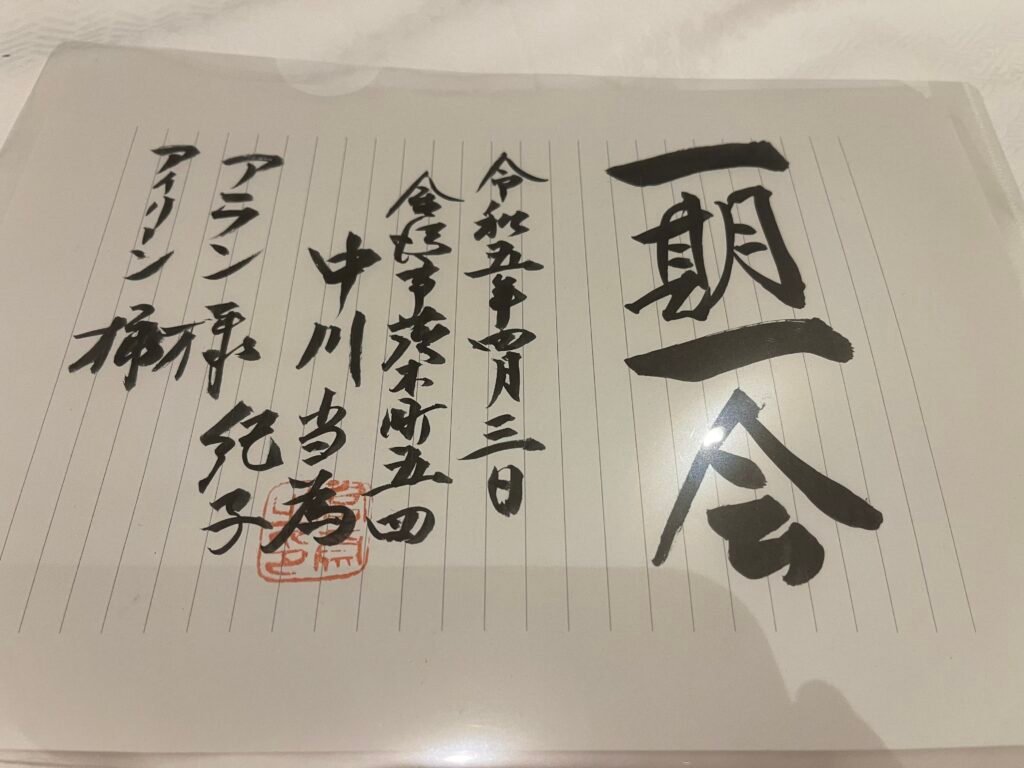 一期一会
令和五年四月三日
金沢市茨木町五四
中川当為
紀子
アラン様
アイリーン様